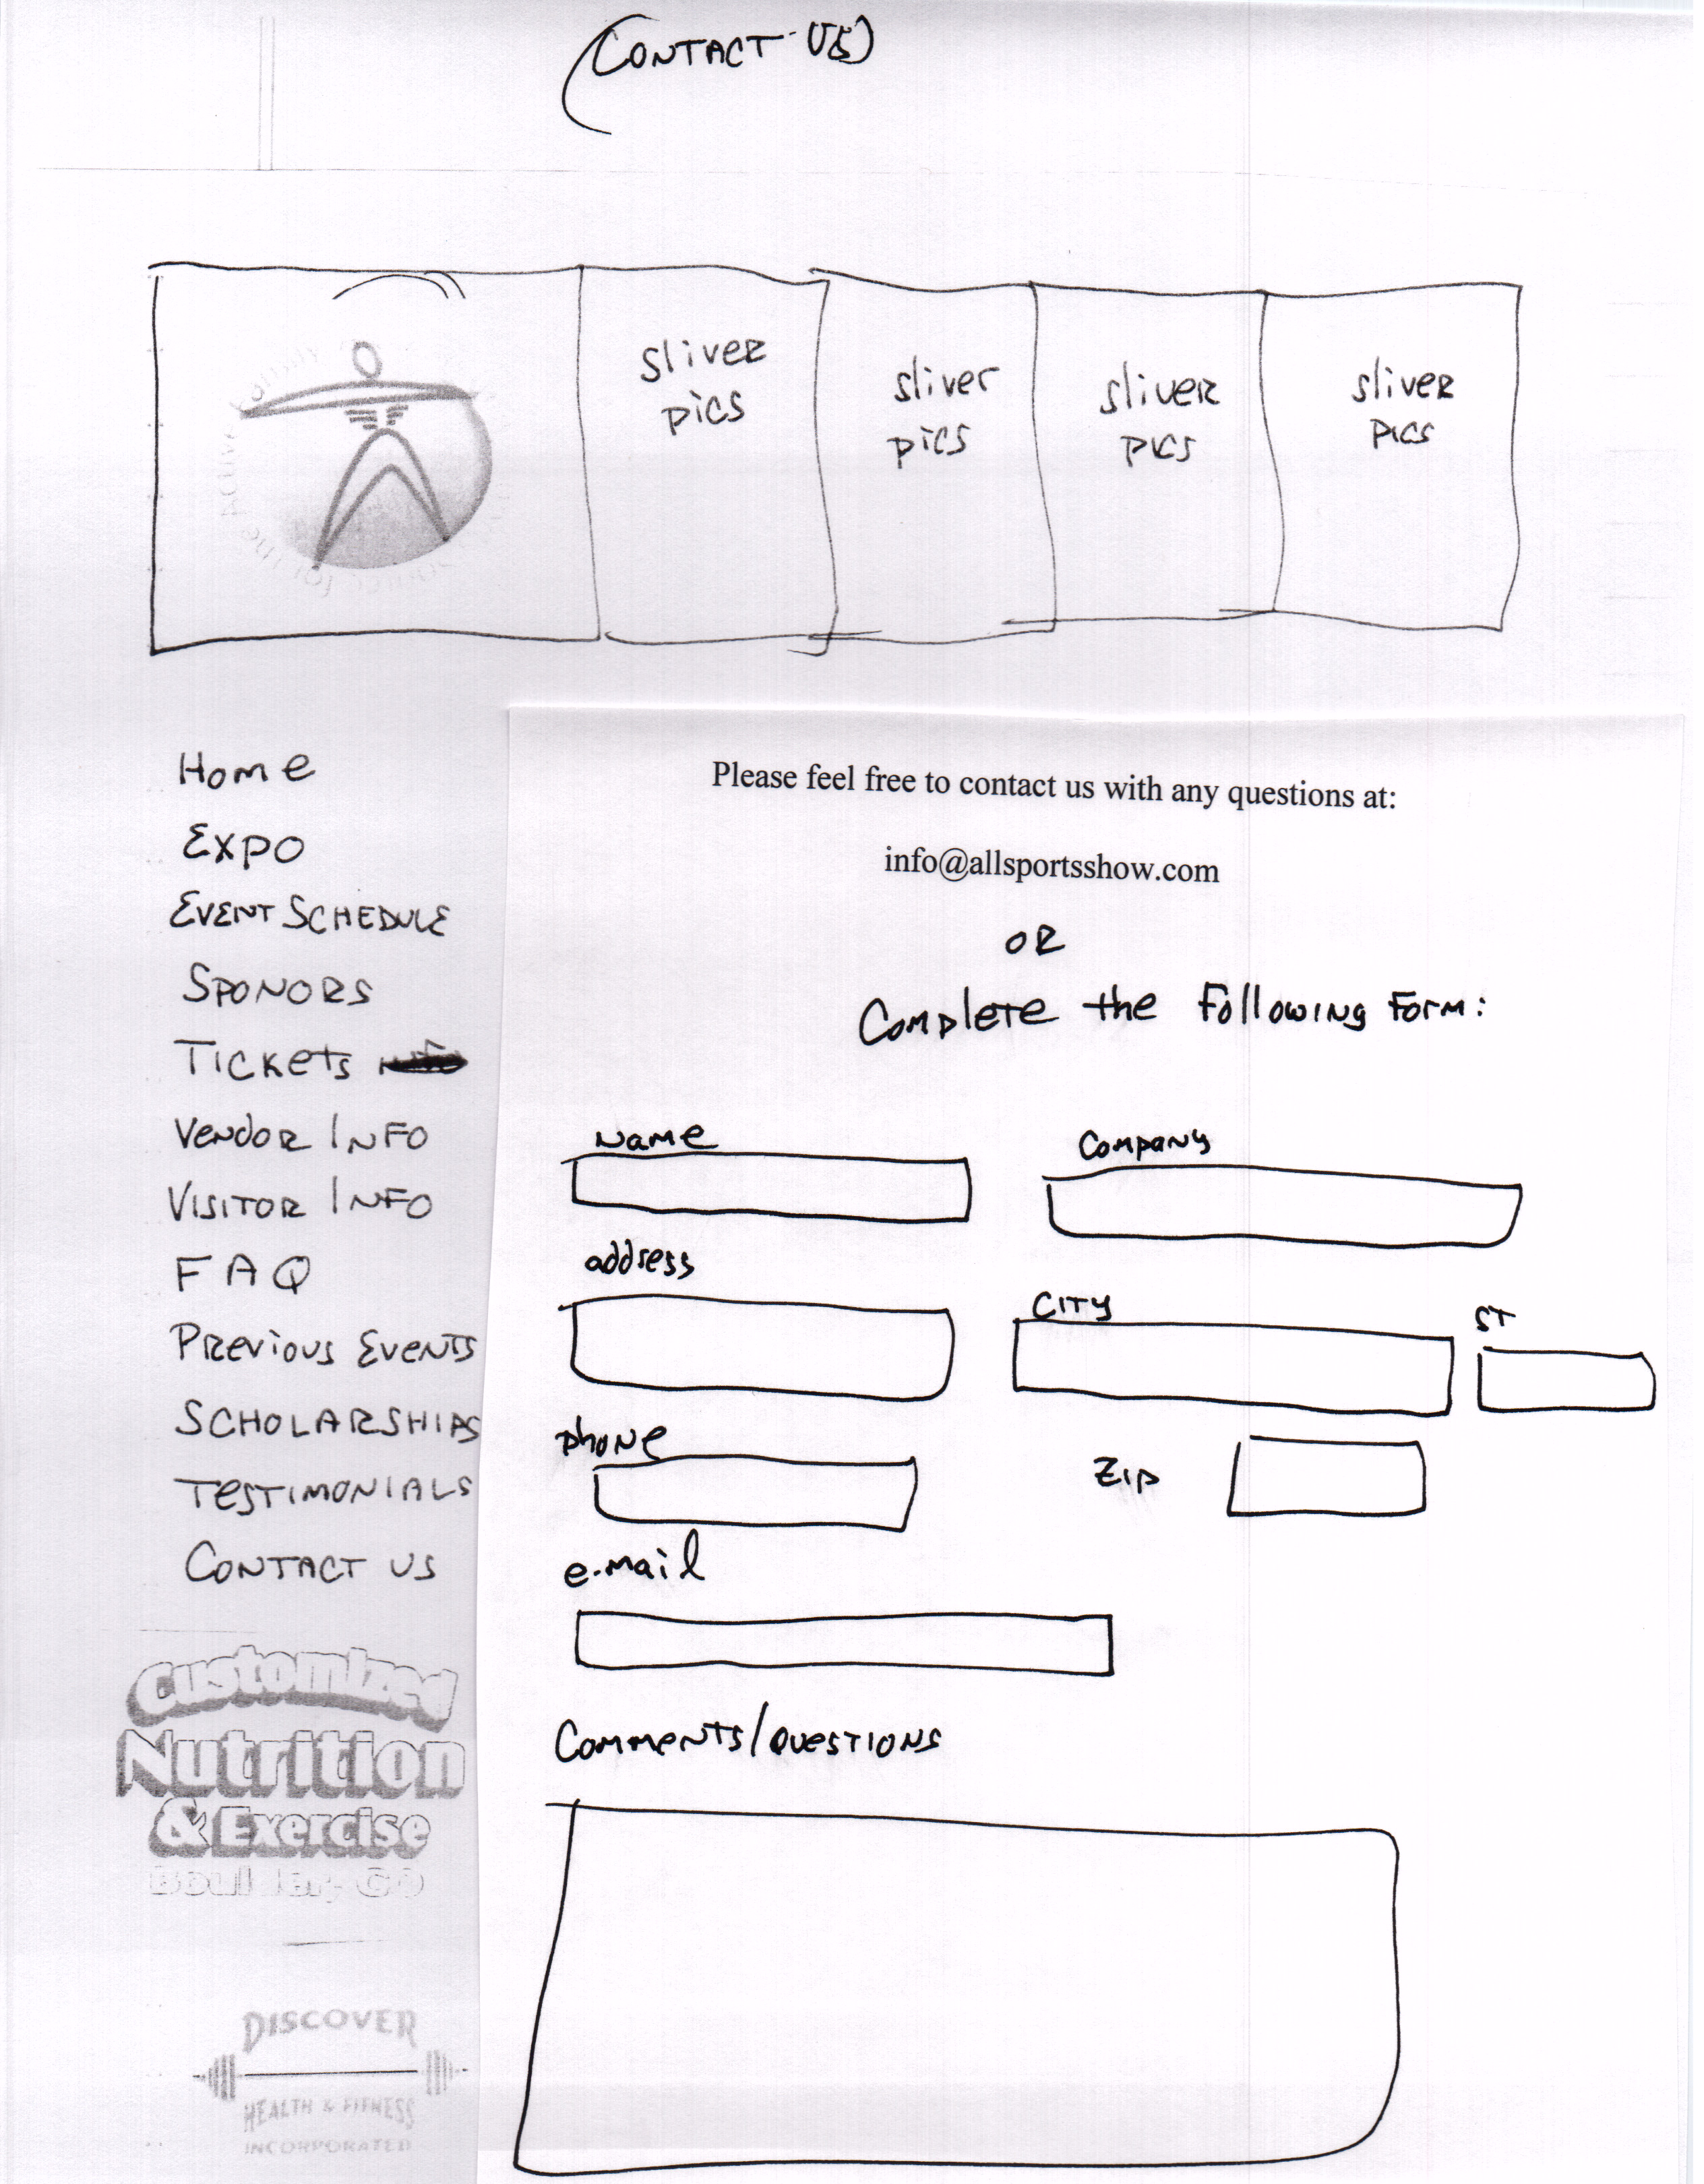 (CONTACT-US)
sliver
pics
sliver
pics
sliver
pics
sliver
pics
Home
Expo
EVENT SCHEDULE
SPONORS
TICKETS
Vendor INFO
VISITOR INFO
FAQ
Previous Events
SCHOLARSHIPS
TESTIMONIALS
CONTACT US
Customized
Nutrition
& Exercise
Boulder, CO
DISCOVER
HEALTH & FITNESS
INCORPORATED
Please feel free to contact us with any questions at:
info@allsportsshow.com
OR
Complete the Following Form:
Name
Company
address
CITY
ST
phone
Zip
e-mail
Comments/Questions